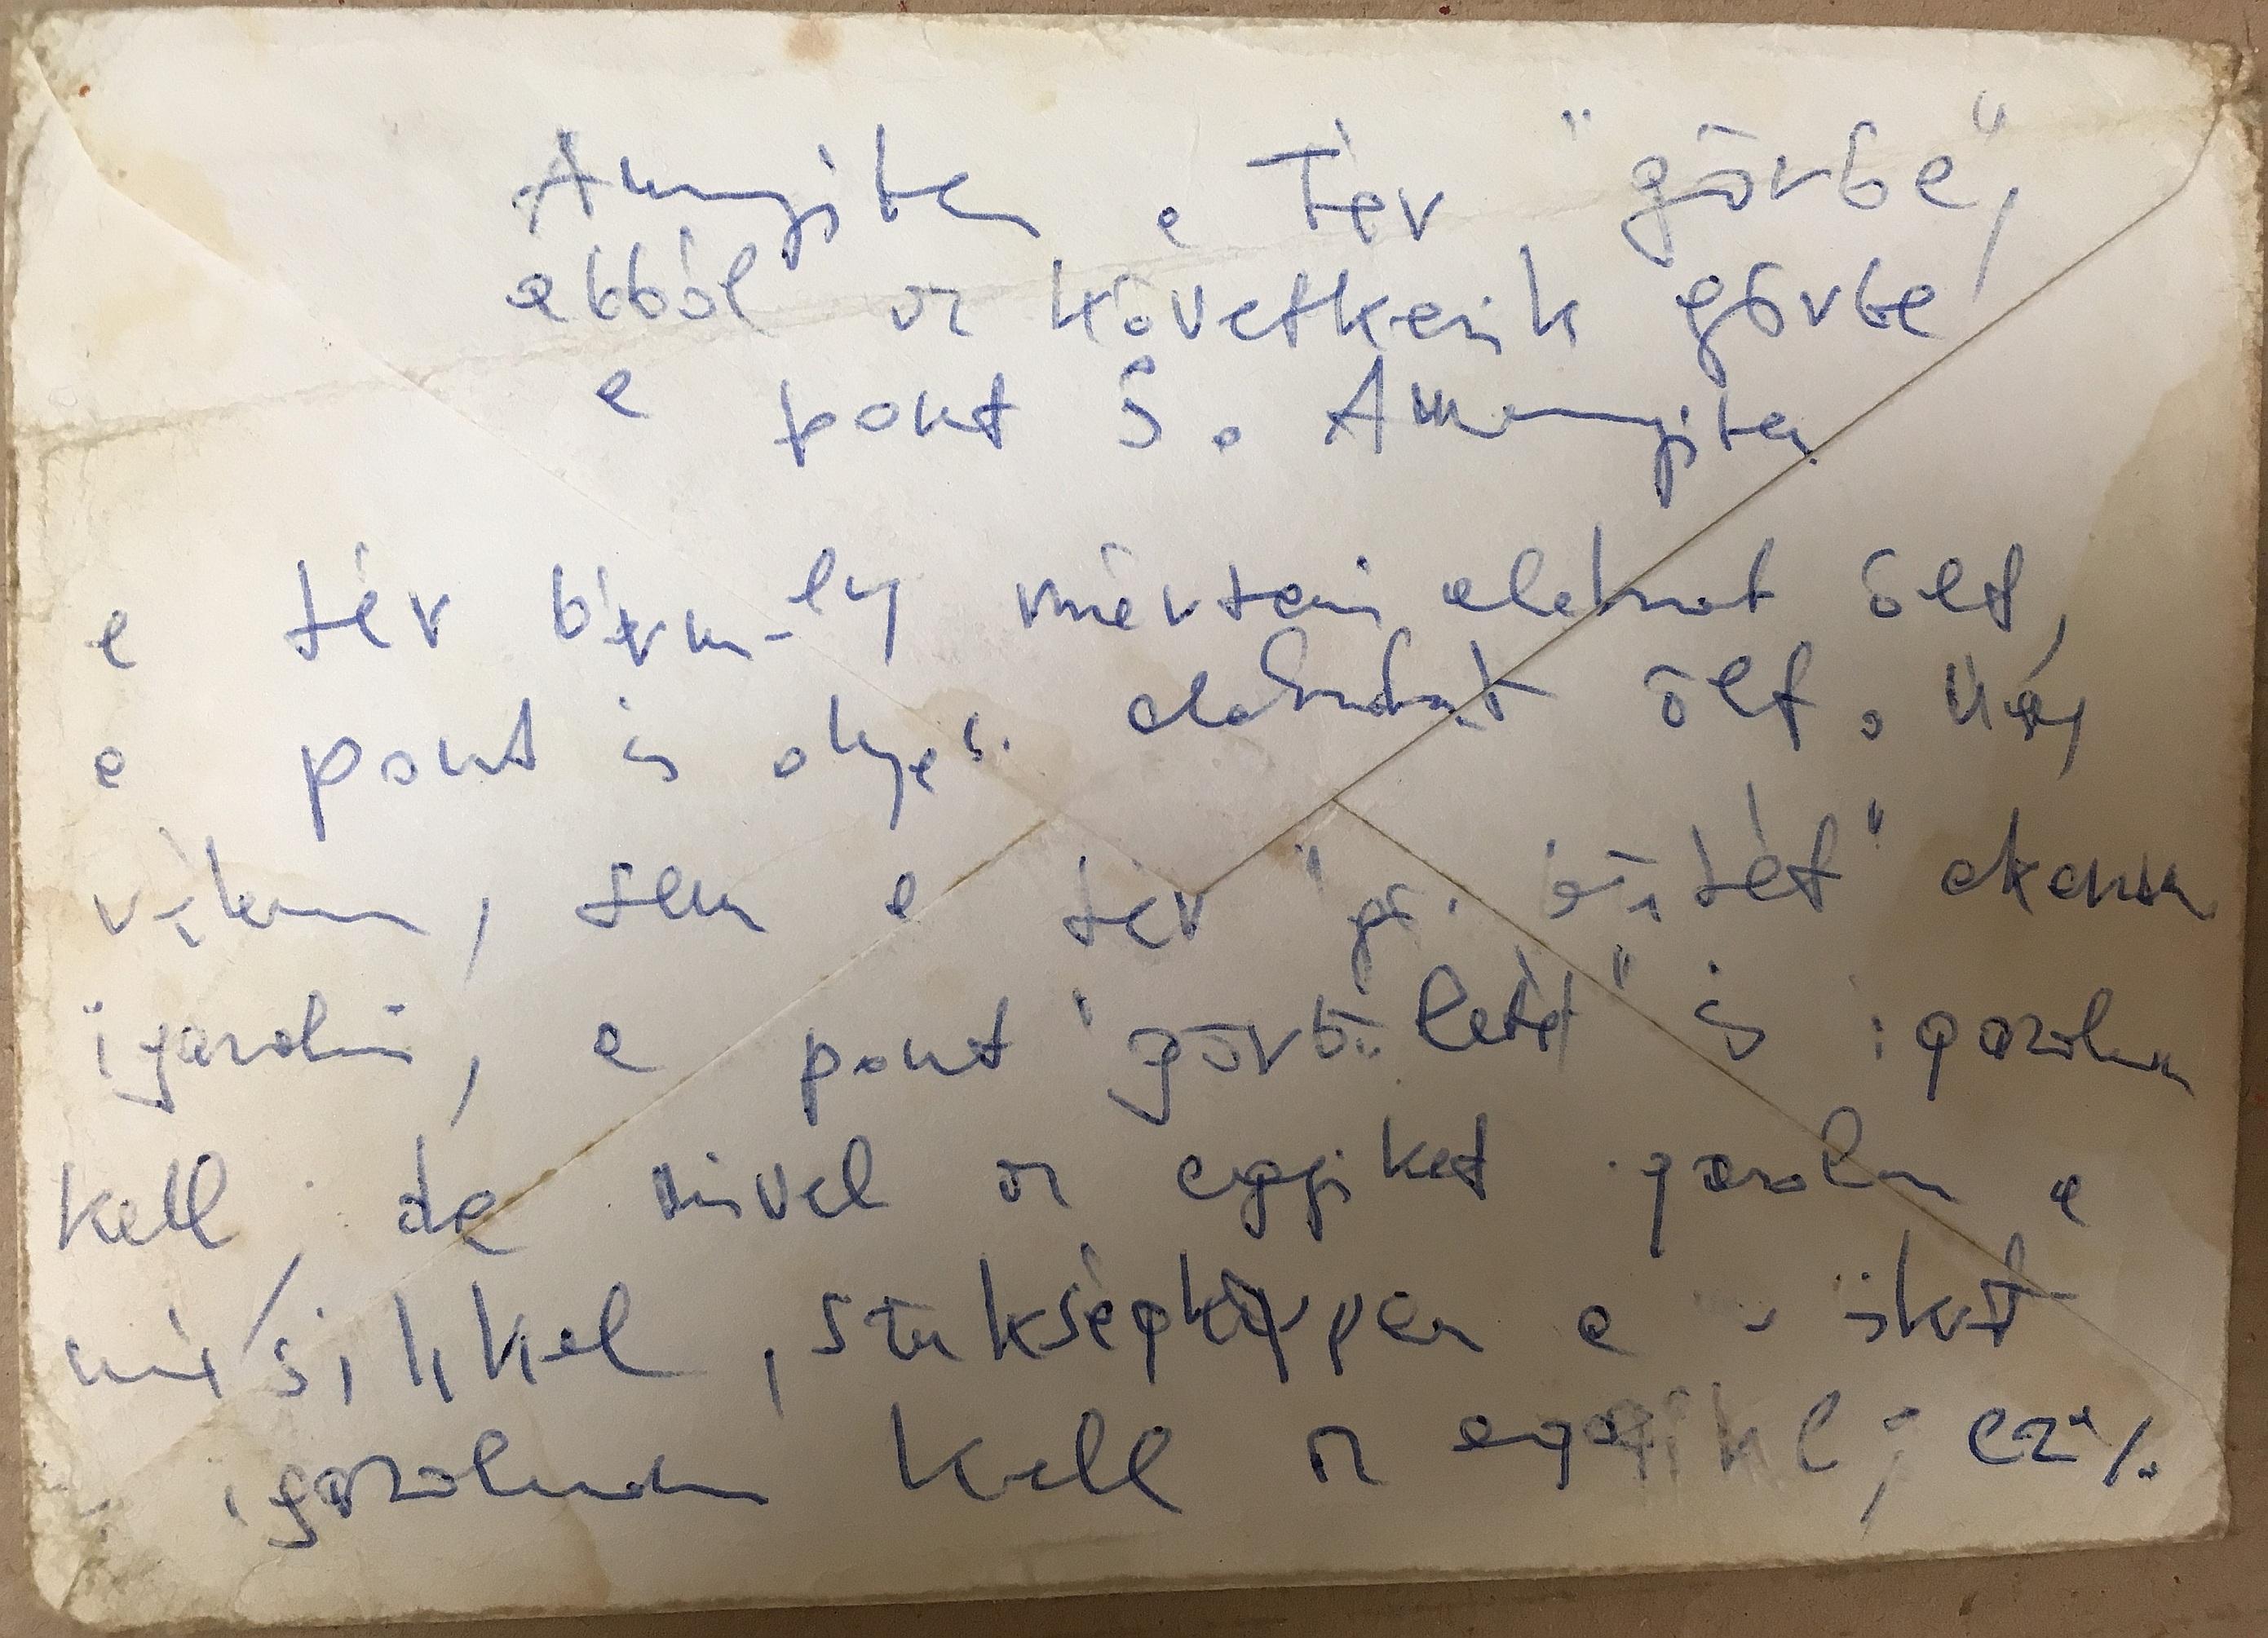 Amennyiben a Tér "görbe",
abból az következik görbe
a pont S. Amennyiben
a tér bármely mértani alakzat ölt,
a pont is olyan alakzatot ölt. Úgy
vélem, sem a tér "gö. ületét" akarom
igazolni, a pont "görbületét" is igazolni
kell, de mivel az egyiket igazolni a
másikkal, szükségképpen a
igazolnom kell az egyikkel; ez a %.